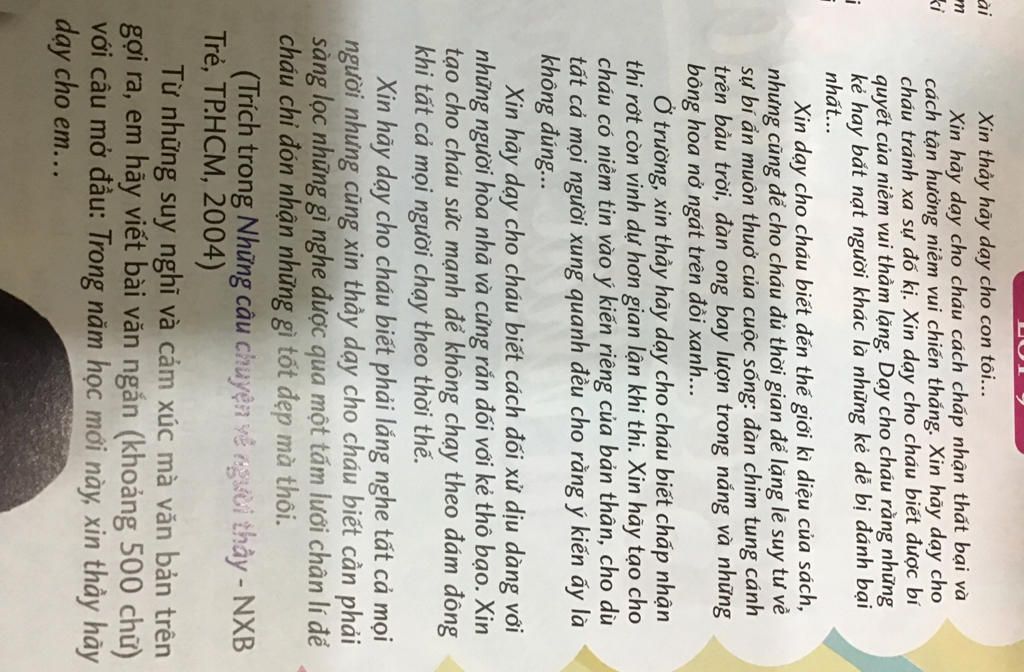 ài
m
ki
i
LỚP 9
Xin thầy hãy dạy cho con tôi...
Xin hãy dạy cho cháu cách chấp nhận thất bại và
cách tận hưởng niềm vui chiến thắng. Xin hãy dạy cho
cháu tránh xa sự đố kị. Xin dạy cho cháu biết được bí
quyết của niềm vui thầm lặng. Dạy cho cháu rằng những
kẻ hay bắt nạt người khác là những kẻ dễ bị đánh bại
nhất...
Xin dạy cho cháu biết đến thế giới kì diệu của sách,
nhưng cũng để cho cháu đủ thời gian để lặng lẽ suy tư về
sự bí ẩn muôn thuở của cuộc sống: đàn chim tung cánh
trên bầu trời, đàn ong bay lượn trong nắng và những
bông hoa nở ngát trên đồi xanh...
Ở trường, xin thầy hãy dạy cho cháu biết chấp nhận
thi rớt còn vinh dự hơn gian lận khi thi. Xin hãy tạo cho
cháu có niềm tin vào ý kiến riêng của bản thân, cho dù
tất cả mọi người xung quanh đều cho rằng ý kiến ấy là
không đúng...
Xin hãy dạy cho cháu biết cách đối xử dịu dàng với
những người hòa nhã và cứng rắn đối với kẻ thô bạo. Xin
tạo cho cháu sức mạnh để không chạy theo đám đông
khi tất cả mọi người chạy theo thời thế.
Xin hãy dạy cho cháu biết phải lắng nghe tất cả mọi
người nhưng cũng xin thầy dạy cho cháu biết cần phải
sàng lọc những gì nghe được qua một tấm lưới chân lí để
cháu chỉ đón nhận những gì tốt đẹp mà thôi.
(Trích trong Những câu chuyện về người thầy - NXB
Trẻ, TP.HCM, 2004)
Từ những suy nghĩ và cảm xúc mà văn bản trên
gợi ra, em hãy viết bài văn ngắn (khoảng 500 chữ)
với câu mở đầu: Trong năm học mới này, xin thầy hãy
dạy cho em...